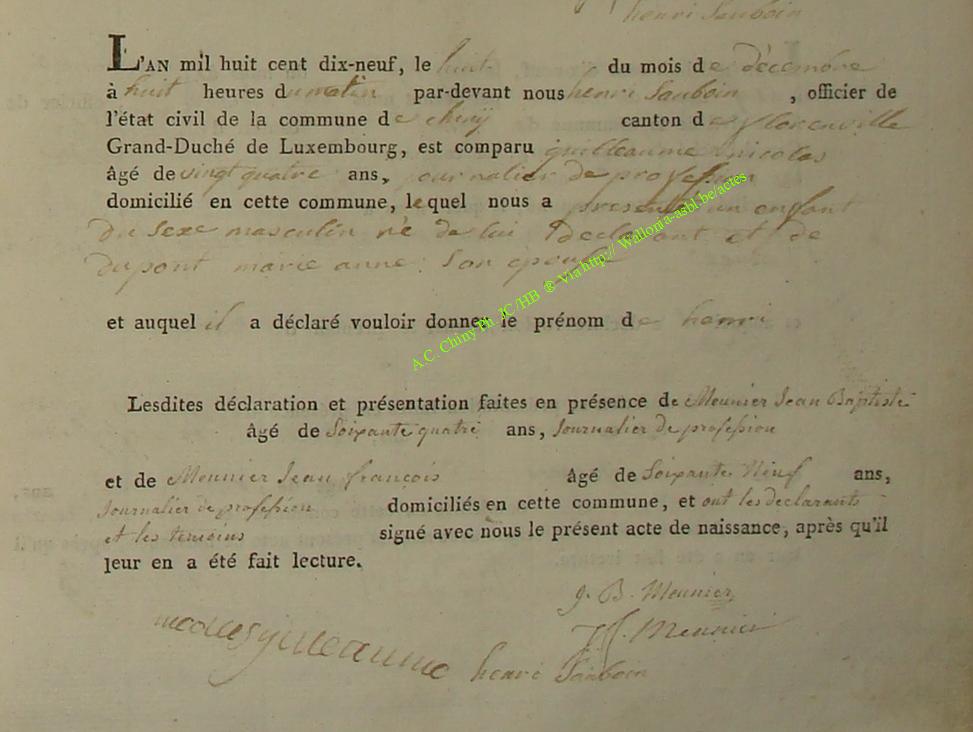 henri Sauboin
L'AN mil huit cent dix-neuf, le huit du mois de décembre
à huit heures du matin par-devant nous henri Sauboin , officier de
l'état civil de la commune de chiny canton de florenville
Grand-Duché de Luxembourg, est comparu guilleaume nicolas
âgé de vingt quatre ans, journalier de profession
domicilié en cette commune, lequel nous a presenté un enfant
du sexe masculin né de lui declarant et de
dupont marie anne son epouse
et auquel il a déclaré vouloir donner le prénom de henri
Lesdites déclaration et présentation faites en présence de Meunier Jean Baptiste
âgé de Soixante quatre ans, Journalier de profession
et de Meunier Jean françois âgé de Soixante Neuf ans,
Journalier de profession domiciliés en cette commune, et ont les declarants
et les temoins signé avec nous le présent acte de naissance, après qu'il
leur en a été fait lecture.
J. B. Meunier
J f. Meunier
nicolas guileaume henri Sauboin
A.C. Chiny Ph JC/HB ® Via http:// Wallonia-asbl.be/actes